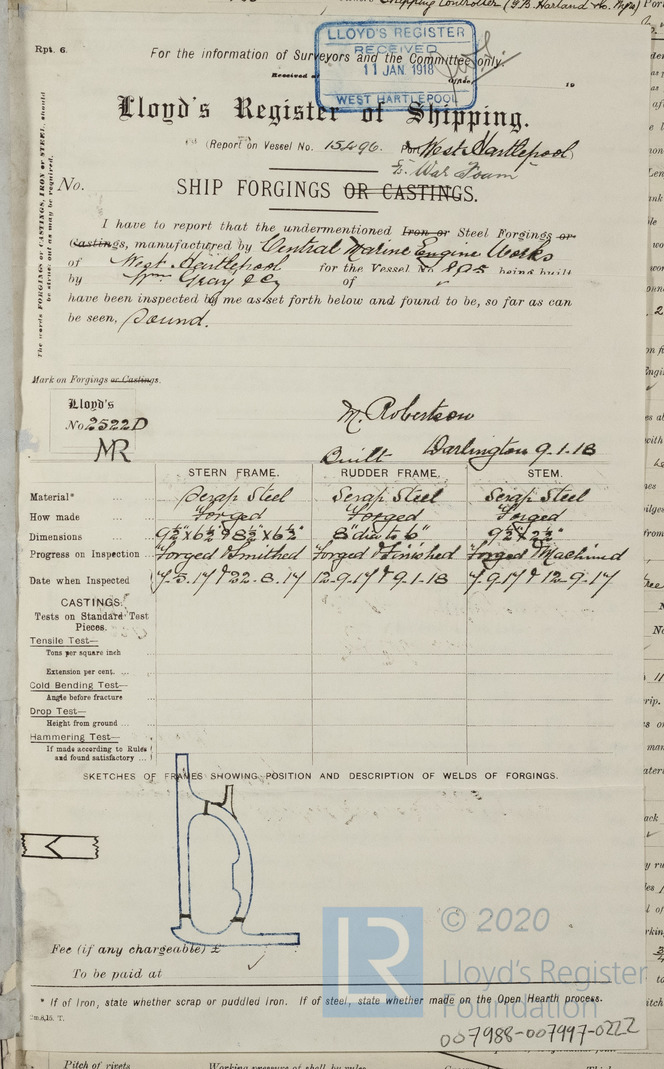 Rpt. 6.
LLOYD'S REGISTER
RECEIVED
11 JAN 1918
WEST HARTLEPOOL
For the information of Surveyors and the Committee only.
Lloyd's Register of Shipping.
(Report on Vessel No. 15496. Port West Hartlepool)
S. War Foam
No.
SHIP FORGINGS OR CASTINGS.
The words FORGINGS or CASTINGS, IRON or STEEL, should be struck out as may be required.
I have to report that the undermentioned Iron or Steel Forgings or
Castings, manufactured by Central Marine Engine Works
of West Hartlepool for the Vessel No. 895 being built
by Wm Gray & Co of
have been inspected by me as set forth below and found to be, so far as can
be seen, sound.
Mark on Forgings or Castings.
Lloyd's
No 2522D
MR
M. Robertson
Built Darlington 9-1-18
STERN FRAME. RUDDER FRAME. STEM.
Material* Scrap Steel Scrap Steel Scrap Steel
How made Forged Forged Forged
Dimensions 9½" x 6½" & 8½" x 6½" 8" dia to 6" 9½" x 2½"
Progress on Inspection Forged & Smithed Forged & Finished Forged & Machined
Date when Inspected 7-5-17 & 22-8-17 12-9-17 & 9-1-18 7-9-17 & 12-9-17
CASTINGS.
Tests on Standard Test
Pieces.
Tensile Test—
Tons per square inch
Extension per cent.
Cold Bending Test—
Angle before fracture
Drop Test—
Height from ground
Hammering Test—
If made according to Rules
and found satisfactory
SKETCHES OF FRAMES SHOWING POSITION AND DESCRIPTION OF WELDS OF FORGINGS.
Fee (if any chargeable) £
To be paid at
* If of Iron, state whether scrap or puddled iron. If of steel, state whether made on the Open Hearth process.
LR
© 2020
Lloyd's Register
Foundation
007988-007997-0222
Pitch of rivets
Working pressure of shell by rules